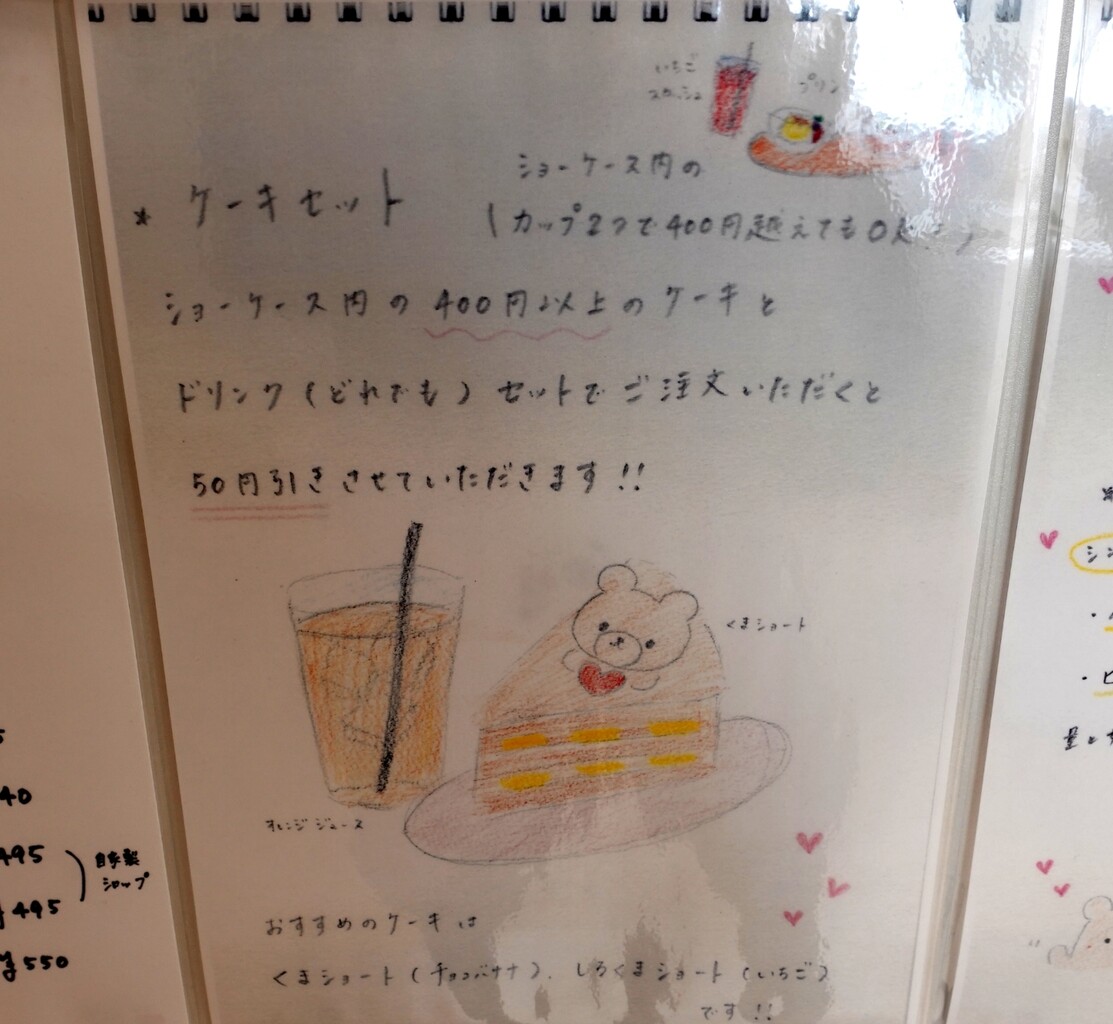 いちご
スカッシュ
プリン
ショーケース内の
* ケーキセット (カップ2つで400円越えてもOK
ショーケース内の400円以上のケーキと
ドリンク(どれでも)セットでご注文いただくと
50円引きさせていただきます!!
くまショート
オレンジジュース
おすすめのケーキは
くまショート(チョコバナナ)、しろくまショート(いちご)
です!!
5
40
495
自家製
シロップ
¥495
¥550